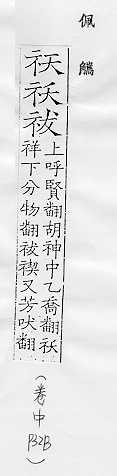 佩觿
祆祅祓
上呼賢翻胡神中乙喬翻祅
祥下分物翻祓禊又芳吠翻
(卷中 P32B)